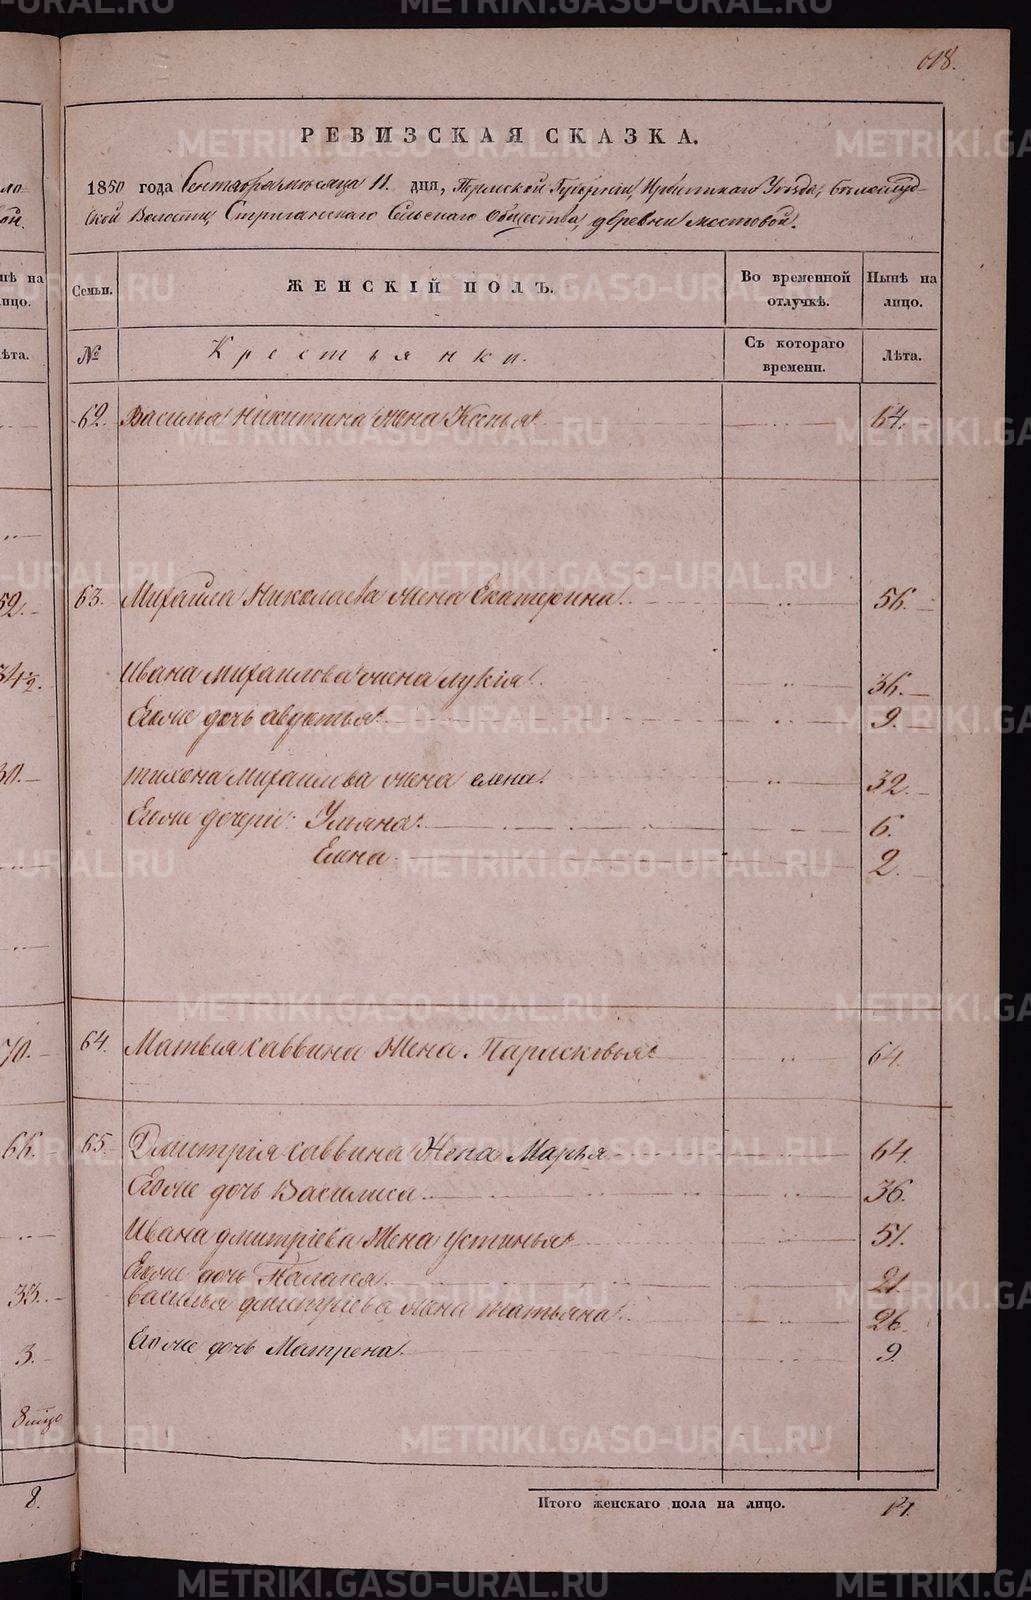 618.
РЕВИЗСКАЯ СКАЗКА.
1850 года Сентября месяца 11 дня, Пермской Губернии, Ирбитскаго Уезда, Белослуд-
ской Волости, Стриганскаго Сельскаго Общества, деревни Мостовой.
Семьи. ЖЕНСКІЙ ПОЛЪ. Во временной отлучкѣ. Нынѣ на лицо.
№ Крестьянки. Съ котораго времени. Лѣта.
62. Василья Никитина жена Ксенья 64.
63. Михайла Николаева жена Екатерина. 56.
Ивана Михайлова жена Лукія 36.
Егоже дочь Авдотья 9.
Тихона Михайлова жена Елена. 32.
Егоже дочери: Ульяна 6.
Елена 2.
64. Матвея Саввина Жена Парасковья 64.
65. Дмитрія Саввина Жена Марья 64.
Егоже дочь Василиса 36.
Ивана Дмитріева Жена Устинья 51.
Егоже дочь Палагея 21.
Василья Дмитріева жена Татьяна 26.
Егоже дочь Матрена 9.
Итого женскаго пола на лицо. 14.
нѣ на
лицо.
ѣта.
52.
34½.
30.
70.
66.
33.
3.
8.
METRIKI.GASO-URAL.RU